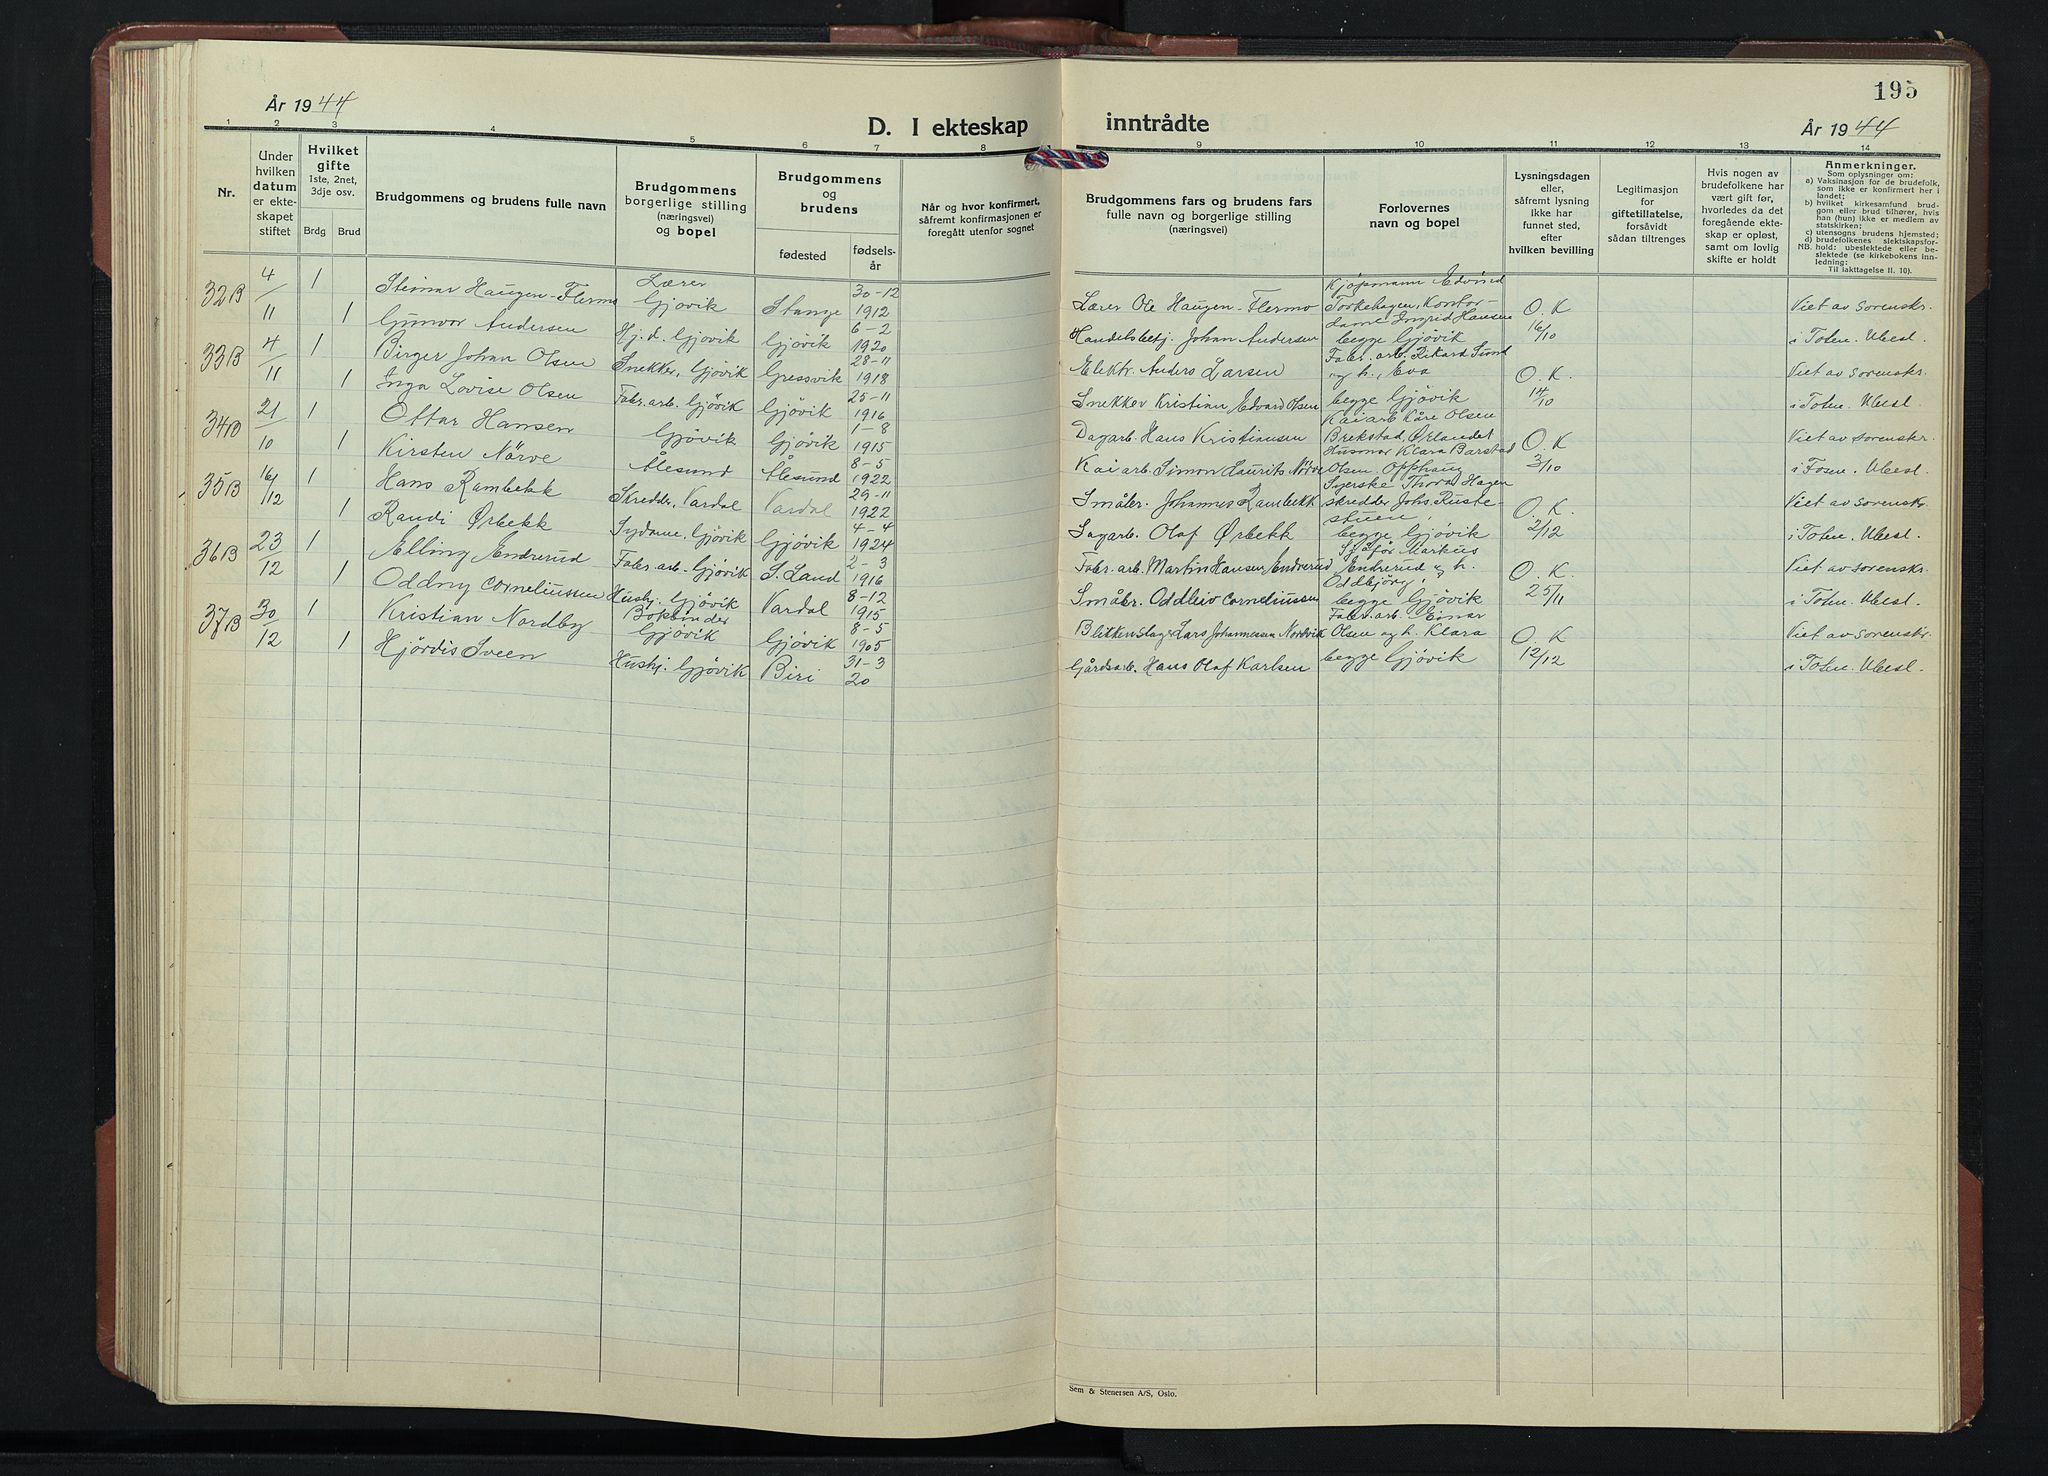 195
År 1944
År 1944
D. I ekteskap inntrådte
1 2 3 4 5 6 7 8 9 10 11 12 13 14
Nr.
Under hvilken datum er ekteskapet stiftet
Hvilket gifte 1ste, 2net, 3dje osv.
Brdg Brud
Brudgommens og brudens fulle navn
Brudgommens borgerlige stilling (næringsvei) og bopel
Brudgommens og brudens
fødested
fødselsår
Når og hvor konfirmert, såfremt konfirmasjonen er foregått utenfor sognet
Brudgommens fars og brudens fars fulle navn og borgerlige stilling (næringsvei)
Forlovernes navn og bopel
Lysningsdagen eller, såfremt lysning ikke har funnet sted, efter hvilken bevilling
Legitimasjon for giftetillatelse, forsåvidt sådan tiltrenges
Hvis nogen av brudefolkene har vært gift før, hvorledes da det foregående ekteskap er opløst, samt om lovlig skifte er holdt
Anmerkninger.
Som oplysninger om:
a) Vaksinasjon for de brudefolk, som ikke er konfirmert her i landet;
b) hvilket kirkesamfund brudgom eller brud tilhører, hvis han (hun) ikke er medlem av statskirken;
c) utensogns brudens hjemsted;
d) brudefolkenes slektskapsforhold: ubeslektede eller beslektede (se kirkebokens innledning:
NB.
Til iakttagelse II. 10).
32B 4/11 1 Steinar Haugen-Flermo Lærer Gjøvik Stange 30-12 1912 Lærer Ole Haugen-Flermo Kjøpmann Edvind Torkehagen, Kontor- O.K. Viet av sorenskr.
1 Gunvor Andersen Hj.d. Gjøvik Gjøvik 6-2 1920 Handelsbetj. Johan Andersen dame Ingrid Hansen begge Gjøvik 16/10 i Toten. Ubesl.
33B 4/11 1 Birger Johan Olsen Snekker, Gjøvik Gressvik 28-11 1918 Elektr. Anders Larsen Fabr. arb. Rikard Sund og h. Eva O.K. Viet av sorenskr.
1 Inga Lovise Olsen Fabr. arb. Gjøvik Gjøvik 25-11 1916 Snekker Kristian Edvard Olsen begge Gjøvik 14/10 i Toten. Ubesl.
34B 21/10 1 Ottar Hansen Gjøvik Gjøvik 1-8 1915 Dagarb. Hans Kristiansen Kaiarb Kåre Olsen Brekstad, Ørlandet O.K Viet av sorenskr.
1 Kirsten Nørve Ålesund Ålesund 8-5 1922 Kaiarb. Simon Laurits Nørve Husmor Klara Barstad Olsen. Opphaug 3/10 i Fosen. Ubesl.
35B 16/12 1 Hans Rambekk Skredder, Vardal Vardal 29-11 1922 Småbr. Johannes Rambekk Syerske Thora Hagen skredder Johs. Ruste- O.K. Viet av sorenskr.
1 Randi Ørbekk Sydame Gjøvik Gjøvik 4-4 1924 Sagarb. Olaf Ørbekk stuen, begge Gjøvik 2/12 i Toten. Ubesl.
36B 23/12 1 Elling Endrerud Fabr. arb. Gjøvik S. Land 2-3 1916 Fabr. arb. Martin Hansen Endrerud Sjåfør Markus Endrerud og h. O.K. Viet av sorenskr.
1 Oddny Corneliussen Hushj. Gjøvik Vardal 8-12 1915 Småbr. Oddleiv Corneliussen Oddbjørg, begge Gjøvik 25/11 i Toten. Ubesl.
37B 30/12 1 Kristian Nordby Bokbinder Gjøvik Gjøvik 8-5 1905 Blikkenslager Lars Johannessen Nordvik Fabr. arb. Einar Olsen og h. Klara O.K Viet av sorenskr.
1 Hjørdis Sveen Hushj. Gjøvik Biri 31-3 20 Gårdsarb. Hans Olaf Karlsen begge Gjøvik 12/12 i Toten. Ubesl.
Sem & Stenersen A/S, Oslo.